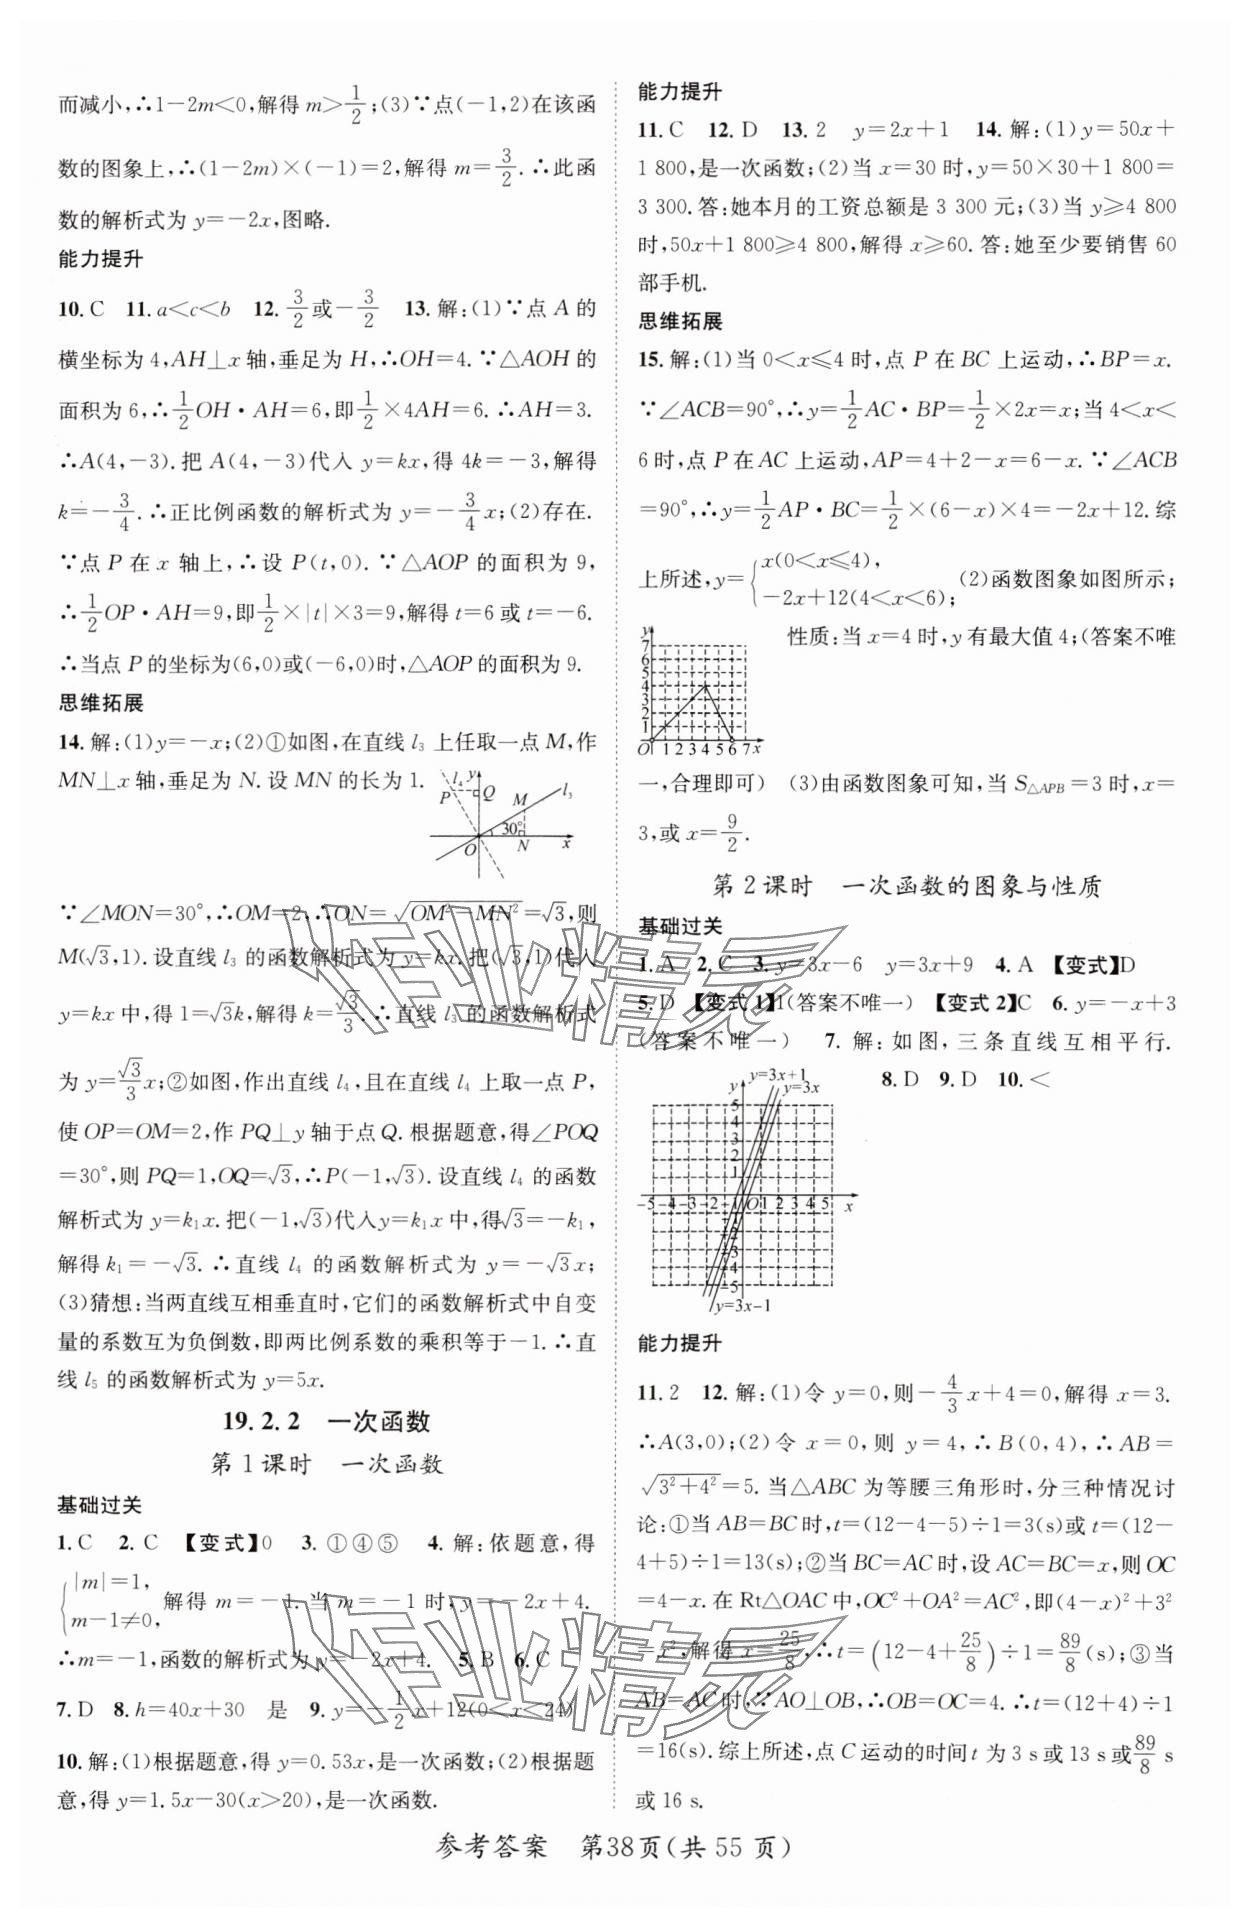 而减小,∴1-2m<0,解得 m>1/2;(3)∵点(-1,2)在该函
数的图象上,∴(1-2m)×(-1)=2,解得 m=3/2.∴此函
数的解析式为 y=-2x,图略.
能力提升
10. C 11. a<c<b 12. 3/2或-3/2 13. 解:(1)∵点 A 的
横坐标为 4,AH⊥x 轴,垂足为 H,∴OH=4.∵△AOH 的
面积为 6,∴1/2OH·AH=6,即1/2×4AH=6.∴AH=3.
∴A(4,-3).把 A(4,-3)代入 y=kx,得 4k=-3,解得
k=-3/4.∴正比例函数的解析式为 y=-3/4x;(2)存在.
∵点 P 在 x 轴上,∴设 P(t,0).∵△AOP 的面积为 9,
∴1/2OP·AH=9,即1/2×|t|×3=9,解得 t=6 或 t=-6.
∴当点 P 的坐标为(6,0)或(-6,0)时,△AOP 的面积为 9.
思维拓展
14. 解:(1)y=-x;(2)①如图,在直线 l₃ 上任取一点 M,作
MN⊥x 轴,垂足为 N.设 MN 的长为 1.
l₄ y
P Q M l₃
30°
O N x
∵∠MON=30°,∴OM=2,∴ON=√(OM²-MN²)=√3,则
M(√3,1).设直线 l₃ 的函数解析式为 y=kx.把(√3,1)代入
y=kx 中,得 1=√3k,解得 k=√3/3.∴直线 l₃ 的函数解析式
为 y=√3/3x;②如图,作出直线 l₄,且在直线 l₄ 上取一点 P,
使 OP=OM=2,作 PQ⊥y 轴于点 Q.根据题意,得∠POQ
=30°,则 PQ=1,OQ=√3,∴P(-1,√3).设直线 l₄ 的函数
解析式为 y=k₁x.把(-1,√3)代入y=k₁x 中,得√3=-k₁,
解得 k₁=-√3.∴直线 l₄ 的函数解析式为 y=-√3x;
(3)猜想:当两直线互相垂直时,它们的函数解析式中自变
量的系数互为负倒数,即两比例系数的乘积等于-1.∴直
线 l₅ 的函数解析式为 y=5x.
19.2.2 一次函数
第 1 课时 一次函数
基础过关
1. C 2. C 【变式】0 3. ①④⑤ 4. 解:依题意,得
{|m|=1, m-1≠0, 解得 m=-1.当 m=-1 时,y=-2x+4.
∴m=-1,函数的解析式为 y=-2x+4. 5. B 6. C
7. D 8. h=40x+30 是 9. y=-1/2x+12(0<x<24)
10. 解:(1)根据题意,得 y=0.53x,是一次函数;(2)根据题
意,得 y=1.5x-30(x>20),是一次函数.
能力提升
11. C 12. D 13. 2 y=2x+1 14. 解:(1)y=50x+
1 800,是一次函数;(2)当 x=30 时,y=50×30+1 800=
3 300.答:她本月的工资总额是 3 300 元;(3)当 y≥4 800
时,50x+1 800≥4 800,解得 x≥60.答:她至少要销售 60
部手机.
思维拓展
15. 解:(1)当 0<x≤4 时,点 P 在 BC 上运动,∴BP=x.
∵∠ACB=90°,∴y=1/2AC·BP=1/2×2x=x;当 4<x<
6 时,点 P 在 AC 上运动,AP=4+2-x=6-x.∵∠ACB
=90°,∴y=1/2AP·BC=1/2×(6-x)×4=-2x+12.综
上所述,y={x(0<x≤4), -2x+12(4<x<6); (2)函数图象如图所示;
性质:当 x=4 时,y 有最大值 4;(答案不唯
y
7
6
5
4
3
2
1
O 1 2 3 4 5 6 7 x
一,合理即可) (3)由函数图象可知,当 S△APB=3 时,x=
3,或 x=9/2.
第 2 课时 一次函数的图象与性质
基础过关
1. A 2. C 3. y=3x-6 y=3x+9 4. A 【变式】D
5. D 【变式 1】1(答案不唯一) 【变式 2】C 6. y=-x+3
(答案不唯一) 7. 解:如图,三条直线互相平行.
8. D 9. D 10. <
y y=3x+1
y=3x
5
4
3
2
1
-5-4-3-2-1 O 1 2 3 4 5 x
-4
-5
y=3x-1
能力提升
11. 2 12. 解:(1)令 y=0,则-4/3x+4=0,解得 x=3.
∴A(3,0);(2)令 x=0,则 y=4,∴B(0,4),∴AB=
√(3²+4²)=5.当△ABC 为等腰三角形时,分三种情况讨
论:①当 AB=BC 时,t=(12-4-5)÷1=3(s)或 t=(12-
4+5)÷1=13(s);②当 BC=AC 时,设 AC=BC=x,则 OC
=4-x.在 Rt△OAC 中,OC²+OA²=AC²,即(4-x)²+3²
=x²,解得 x=25/8,∴t=(12-4+25/8)÷1=89/8(s);③当
AB=AC 时,∵AO⊥OB,∴OB=OC=4.∴t=(12+4)÷1
=16(s).综上所述,点 C 运动的时间 t 为 3 s 或 13 s 或89/8 s
或 16 s.
参考答案 第38页(共 55 页)
作业精灵
作业精灵